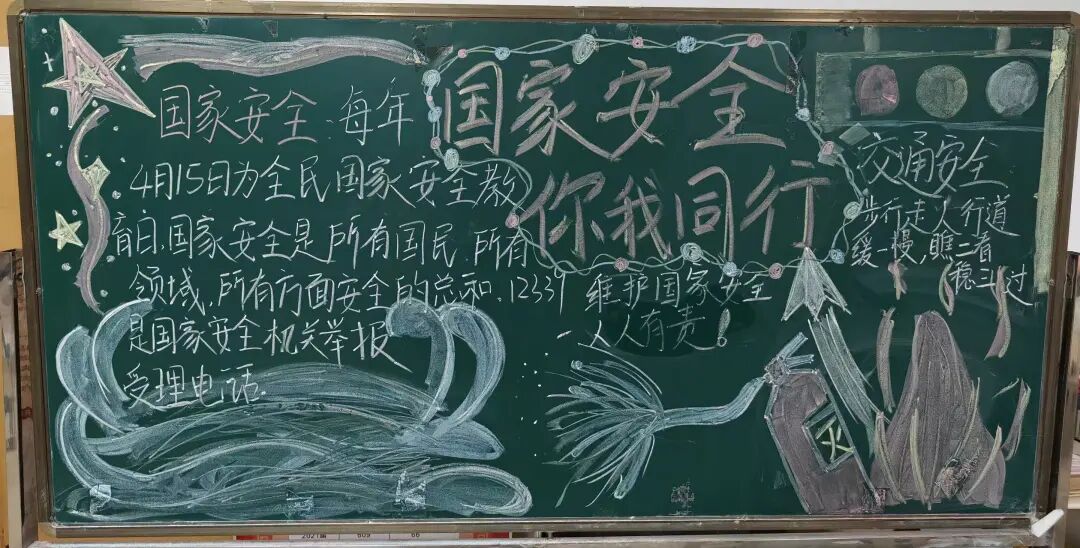 国家安全,每年
4月15日为全民国家安全教
育日,国家安全是所有国民、所有
领域、所有方面安全的总和、12339
是国家安全机关举报
受理电话.
国家安全
你我同行
维护国家安全
人人有责!
交通安全
步行走人行道
缓一慢,瞧二看
稳斗过
灭
2021届
609
66